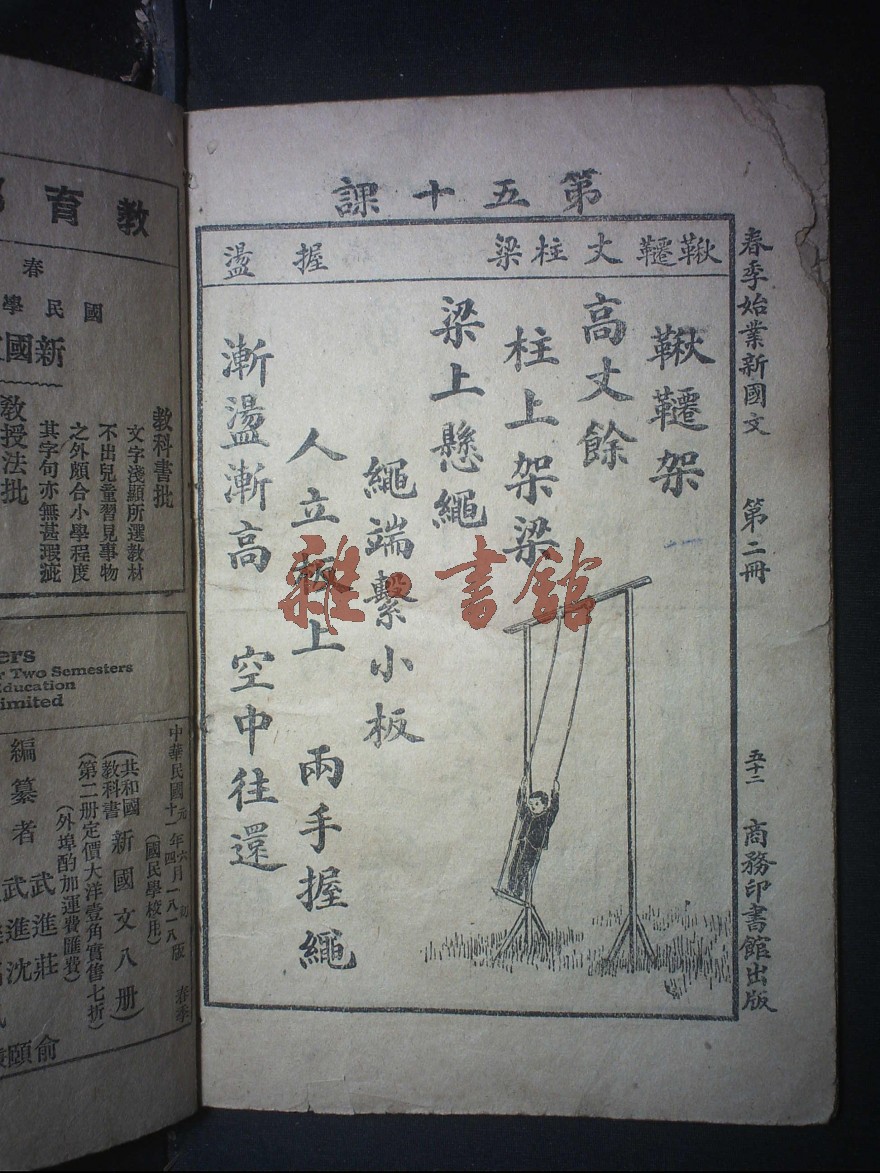 第五十課
鞦韆 丈 柱 梁 握 盪
鞦韆架
高丈餘
柱上架梁
梁上懸繩
繩端繫小板
人立板上 兩手握繩
漸盪漸高 空中往還
春季始業新國文 第二冊 五十二 商務印書館出版
雅 書館
教育
春
國民學
新國
教科書批
文字淺顯所選教材
不出兒童習見事物
之外頗合小學程度
其字句亦無甚瑕疵
教授法批
ers
r Two Semesters
Education
imited
中華民國
(國民學校用)
(共和國教科書 新國文八册)
(第二册定價大洋壹角實售七折)
(外埠酌加運費匯費)
編纂者 武進莊
武進沈